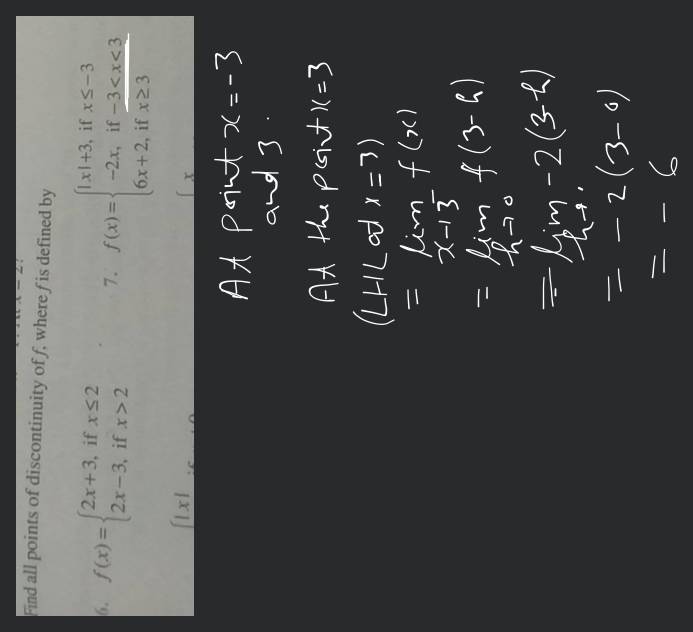 Find all points of discontinuity of f, where f is defined by
6. f(x) = { 2x+3, if x ≤ 2
2x-3, if x > 2
7. f(x) = { |x|+3, if x ≤ -3
-2x, if -3 < x < 3
6x+2, if x ≥ 3
{ |x|
{ x
At point x = -3
and 3.
At the point x = 3
(LHL at x = 3)
= lim x→3⁻ f(x)
= lim h→0 f(3-h)
= lim h→0 -2(3-h)
= -2(3-0)
= -6